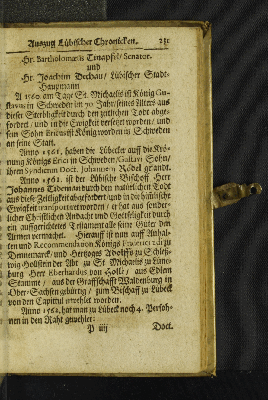 Auszug Lübischer Chronicken. 231
Hr. Bartholomæus Tinapfel/Senator.
und
Hr. Joachim Dechau/ Lübischer Stadt-
Hauptmann
A 1560. am Tage St. Michaelis ist König Gu-
stavus in Schweden im 70 Jahr seines Alters aus
dieser Sterbligkeit durch den zeitlichen Todt abge-
fordert/ und in die Ewigkeit versetzet worden/ und
sein Sohn Ericus ist König worden in Schweden
an seine Statt.
Anno 1561, haben die Lübecker auff die Krö-
nung Königs Erici in Schweden/ Gustavi Sohn/
ihren Syndicum Doct. Johannem Rödel gesandt.
Anno 1561. ist der Lübische Bischoff Herr
Johannes Tideman durch den natürlichen Todt
aus diese Zeitligkeit abgefordert/ und in die himlische
Ewigkeit transportiret worden/ er hat aus sonder-
licher Christlichen Andacht und Gottseligkeit durch
ein auffgerichtetes Testament alle seine Güter den
Armen vermachet. Hierauff ist nun auff Anhal-
ten und Recommendation Königs Friderici 2di zu
Dennemarck/ und Hertzogs Adolffs zu Schleß-
wig-Holstein der Abt zu St. Michaelis zu Lüne-
burg Herr Eberhardus von Holle/ aus Edlem
Stamme/ aus der Graffschafft Waldenburg in
Ober-Sachsen gebürtig/ zum Bischoff zu Lübeck
von den Capitul erwehlet worden.
Anno 1562, hat man zu Lübeck noch 4. Persoh-
nen in den Raht gewehlet:
P iiij Doct.